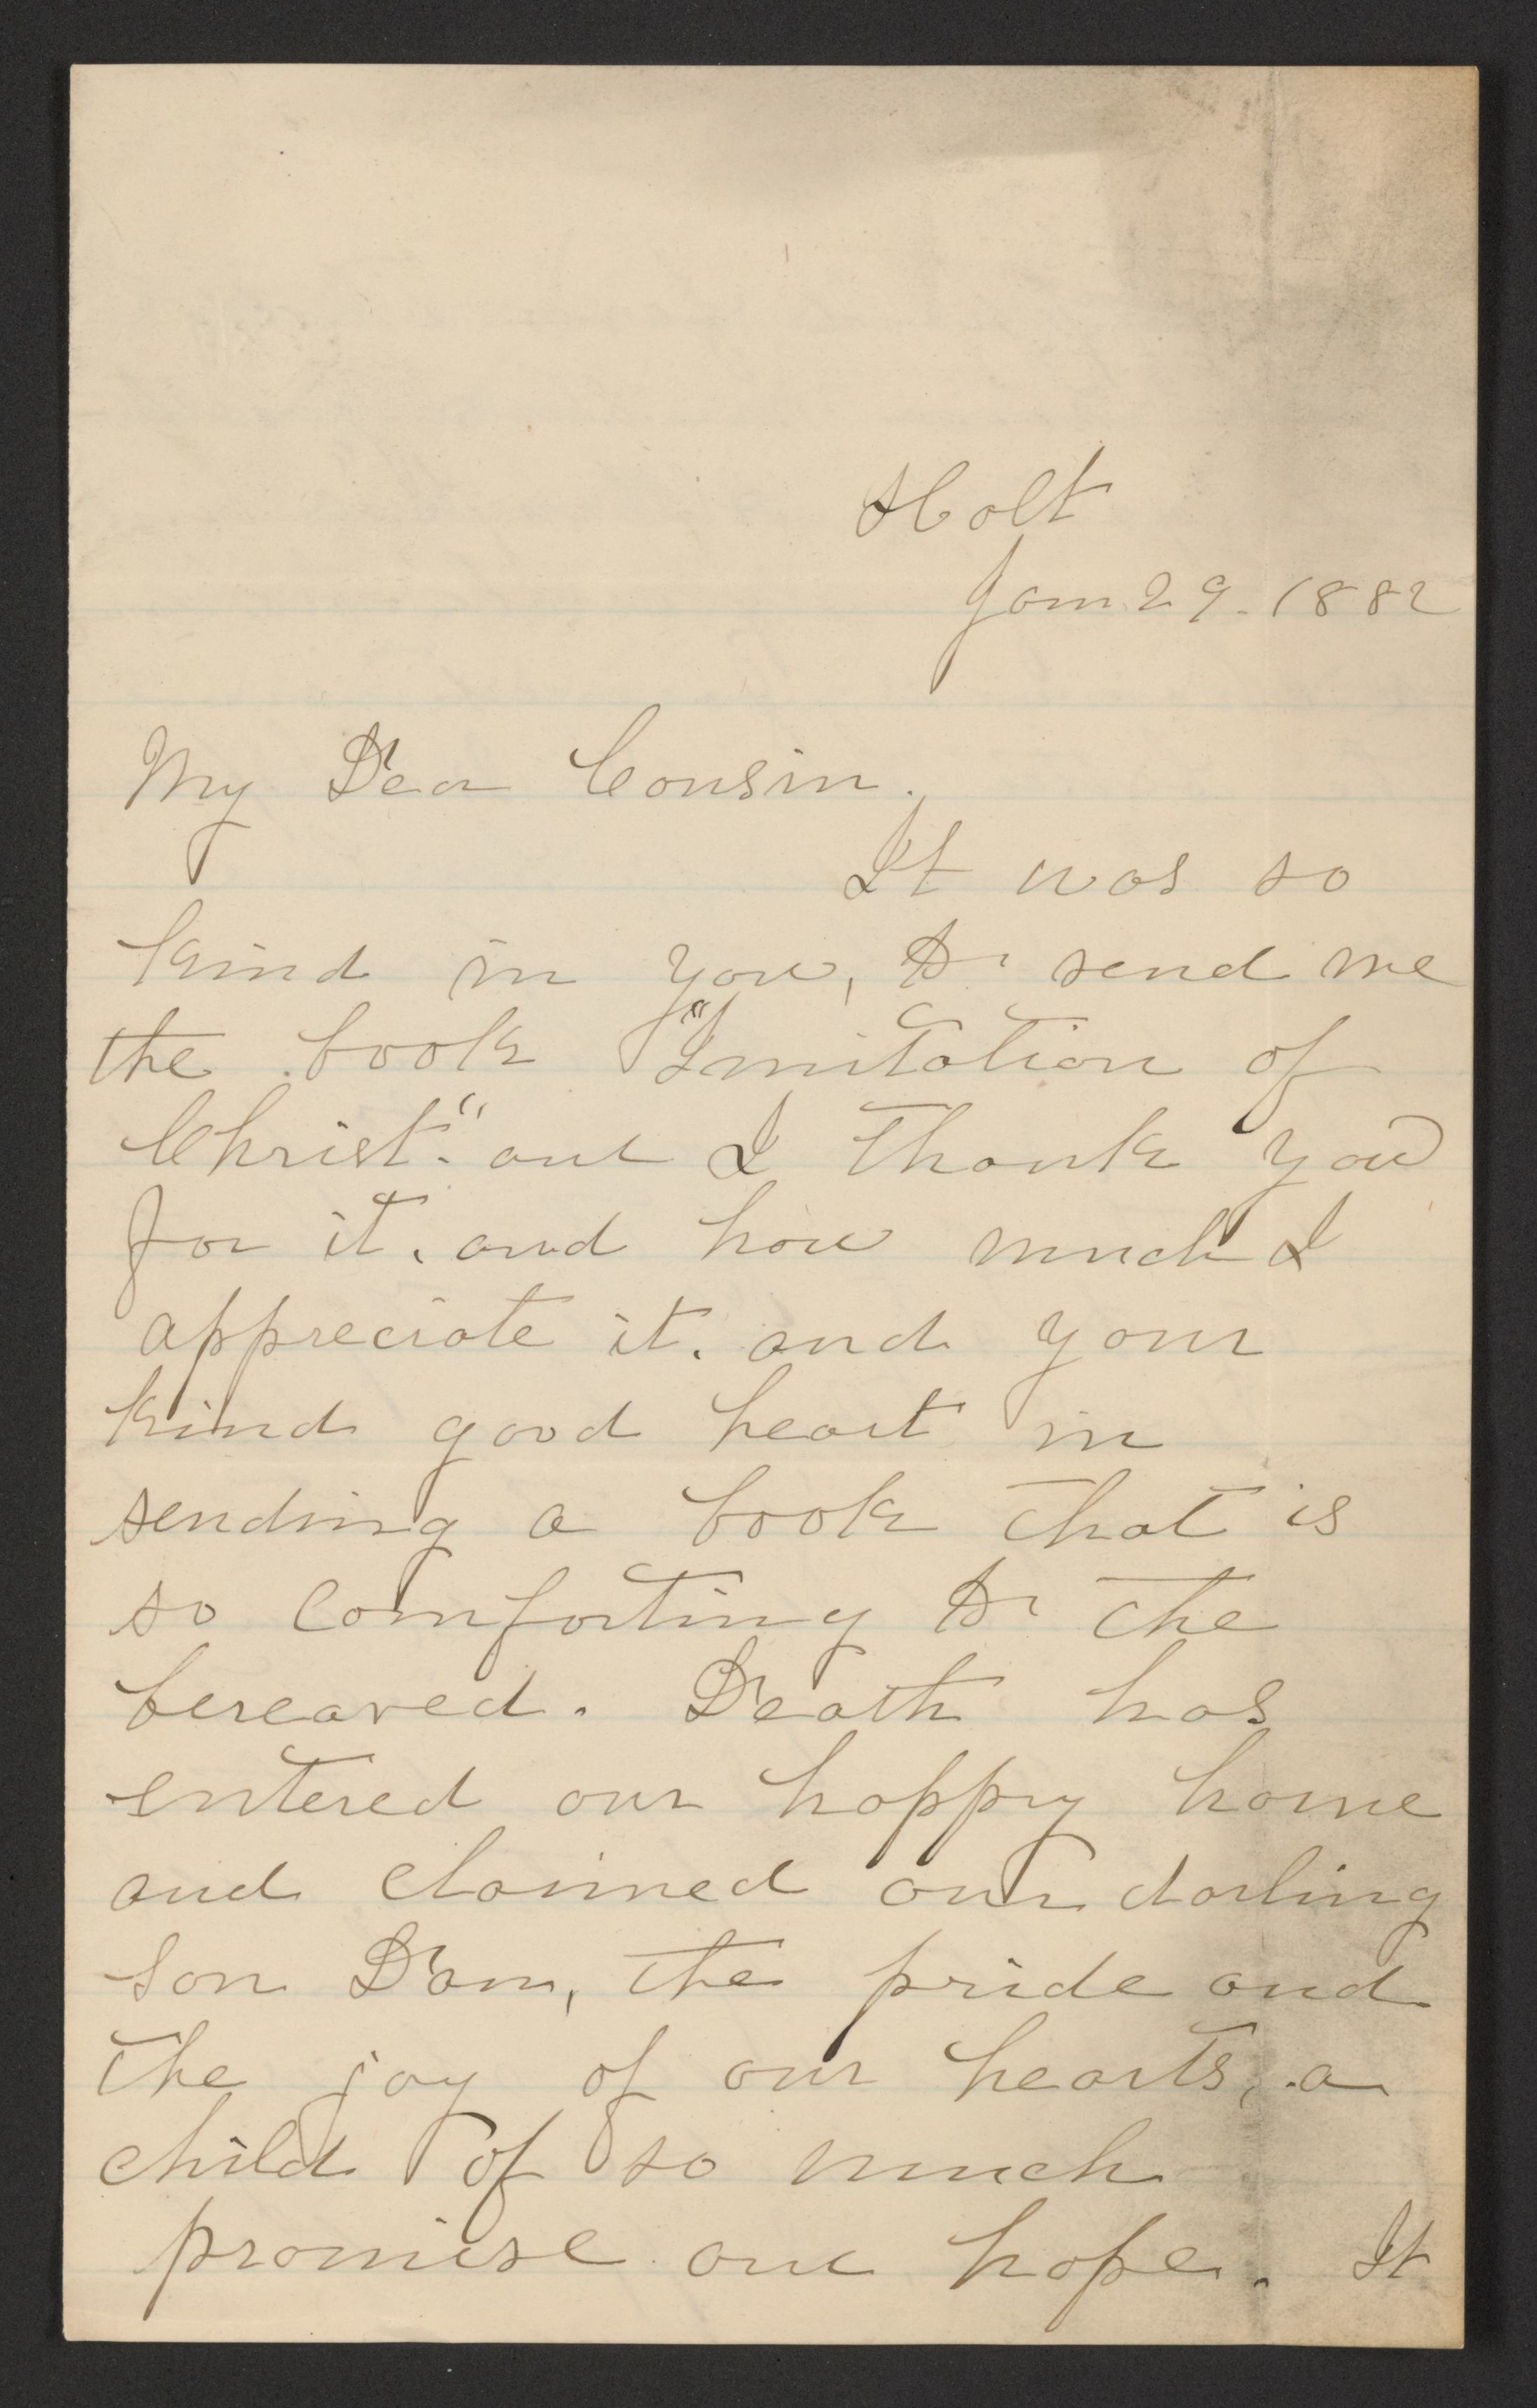 Holt
Jan 29. 1882
My Dear Cousin.
It was so
kind in you, to send me
the book "Imitation of
Christ." and I thank you
for it. and how much I
appreciate it. and your
kind good heart in
sending a book that is
so comforting to the
bereaved. Death has
entered our happy home
and claimed our darling
son Dan, the pride and
the joy of our hearts, a
child of so much
promise and hope. It